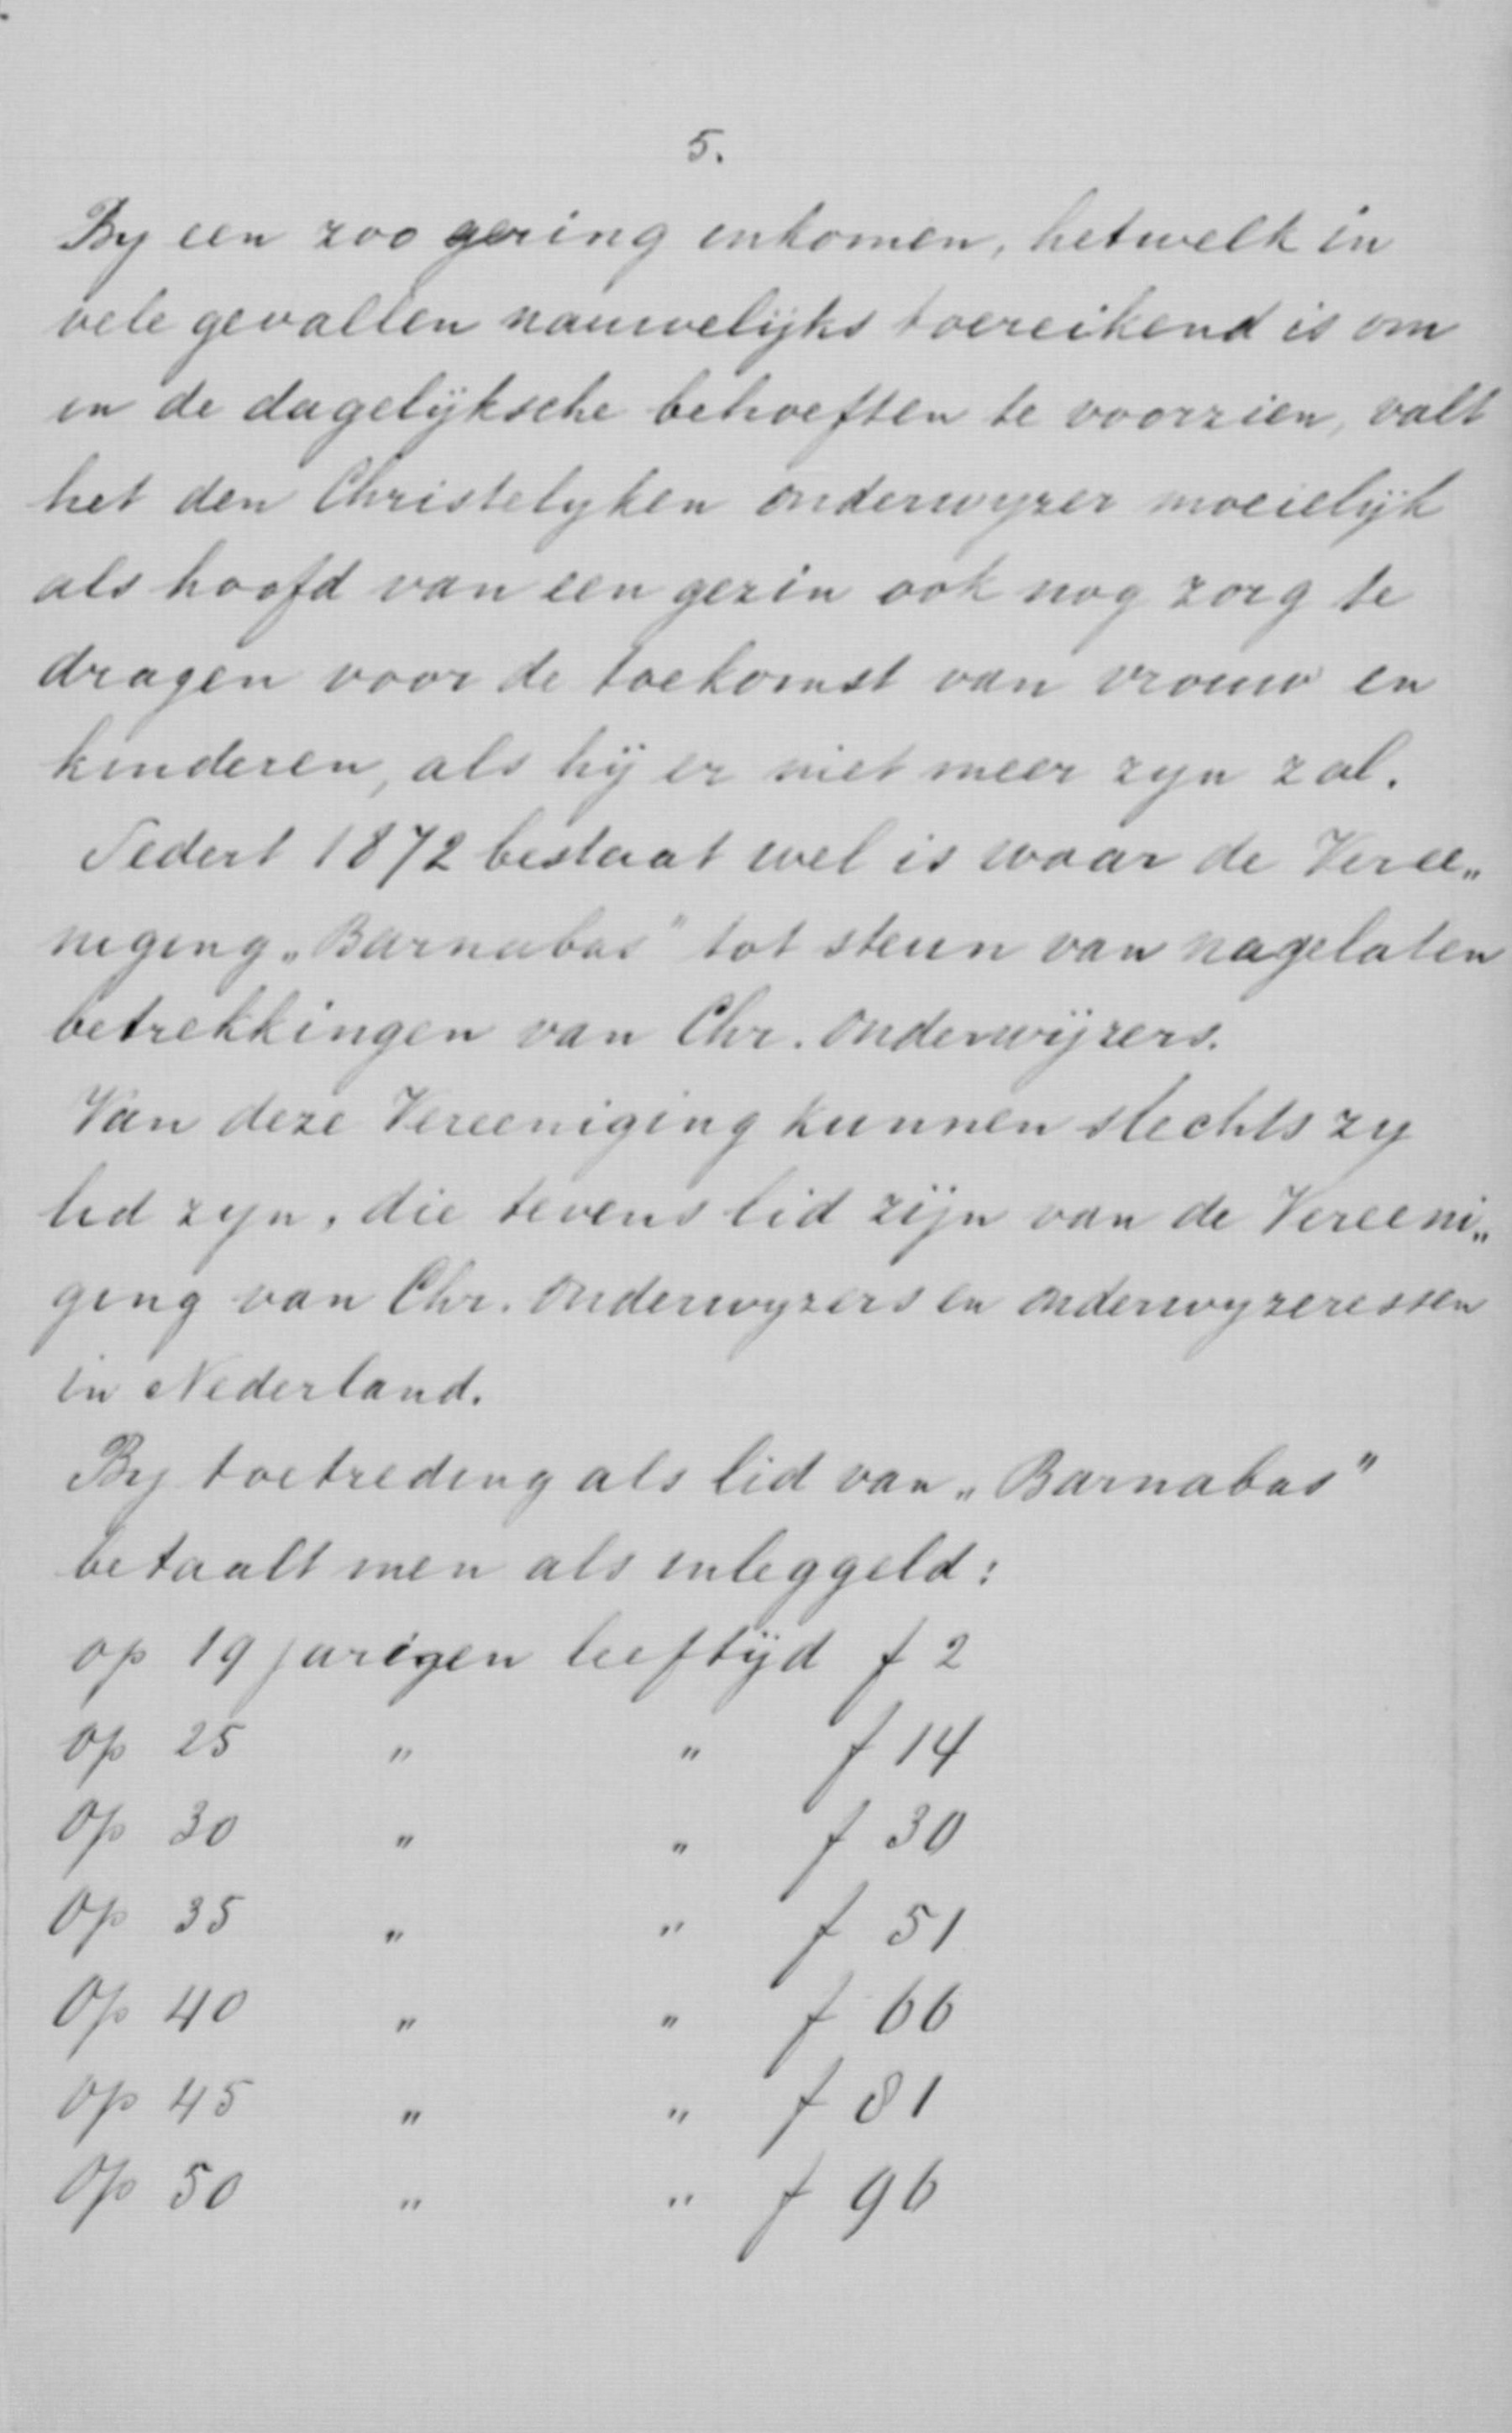 5.
By een zoo gering inkomen, hetwelk in
vele gevallen nauwelijks toereikend is om
in de dagelijksche behoeften te voorzien, valt
het den Christelyken onderwyzer moeielijk
als hoofd van een gezin ook nog zorg te
dragen voor de toekomst van vrouw en
kinderen, als hij er niet meer zyn zal.
Sedert 1872 bestaat wel is waar de Veree„
niging „Barnabas" tot steun van nagelaten
betrekkingen van Chr. onderwijzers.
Van deze Vereeniging kunnen slechts zy
lid zyn, die tevens lid zijn van de Vereeni„
ging van Chr. onderwyzers en onderwyzeressen
in Nederland.
By toetreding als lid van „Barnabas"
betaalt men als inleggeld:
op 19 jarigen leeftijd f 2
op 25 " " f 14
op 30 " " f 30
Op 35 " " f 51
Op 40 " " f 66
op 45 " " f 81
Op 50 " " f 96